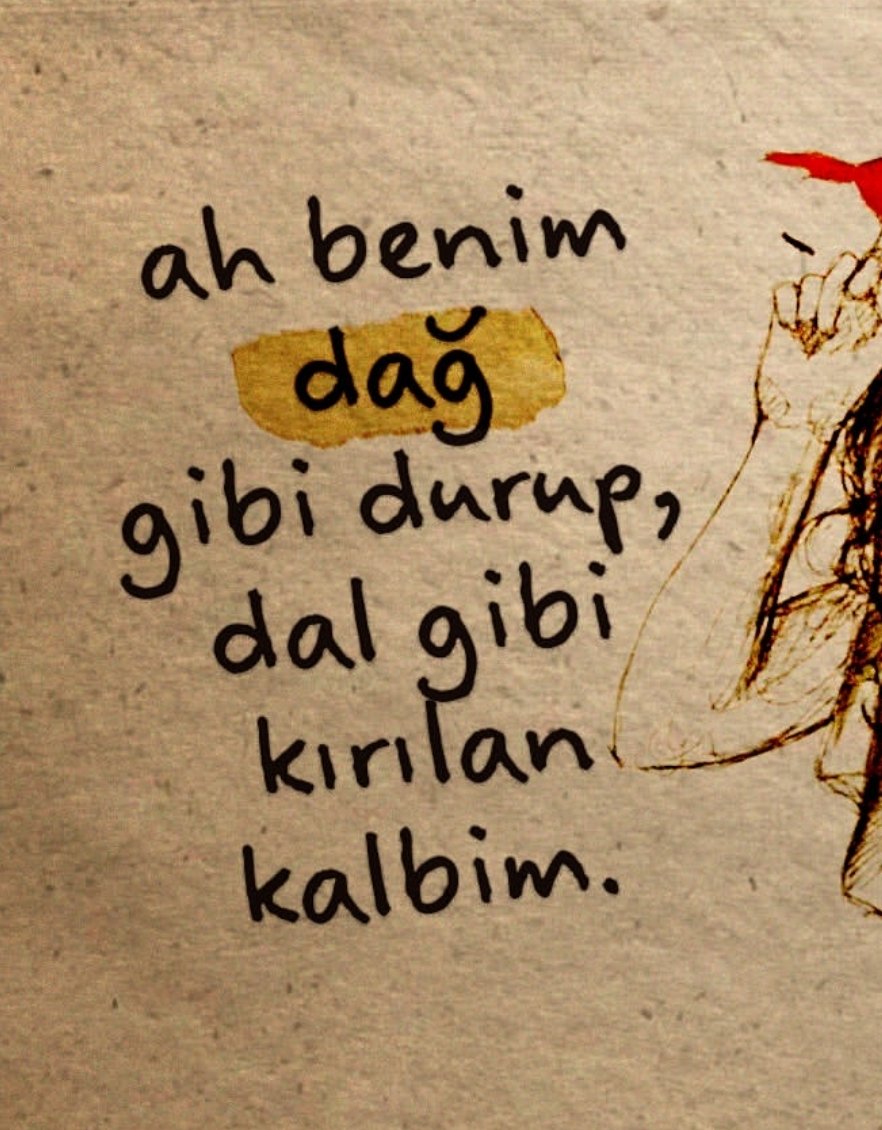 ah benim
dağ
gibi durup,
dal gibi
kırılan
kalbim.